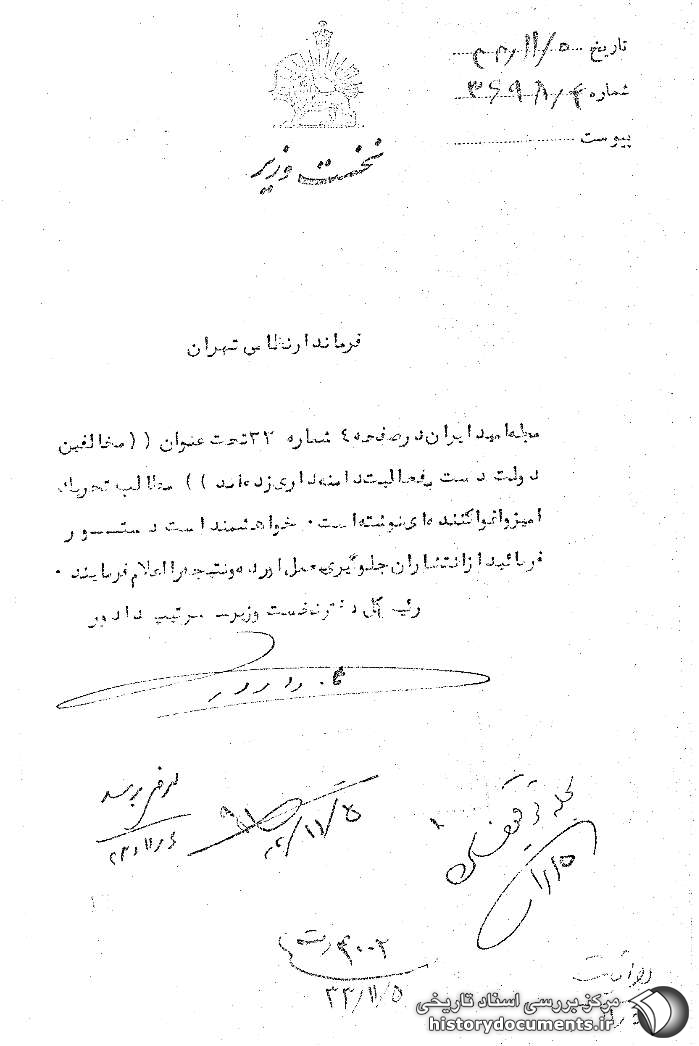 تاریخ ۳۳/۱۱/۵
شماره ۳۶۹۸۰۴
پیوست
نخست وزیر
فرماندار نظامی تهران
مجله امید ایران در صفحه ۴ شماره ۳۲ تحت عنوان ((مخالفین
دولت دست بفعالیت دامنه داری زده‌اند)) مطالب تحریک
امیز واغواکننده ای نوشته است۰ خواهشمند است دستـــور
فرمائید از انتشاران جلوگیری بعمل اورده ونتیجه را اعلام فرمایند۰
رئیس کل دفتر نخست وزیر ـ مرتب دادور
بعرض برسد
۳۳/۱۱/۵
مجله توقیف
۱۱/۵
۴۰۰۲
۳۳/۱۱/۵
مرکز بررسی اسناد تاریخی
historydocuments.ir